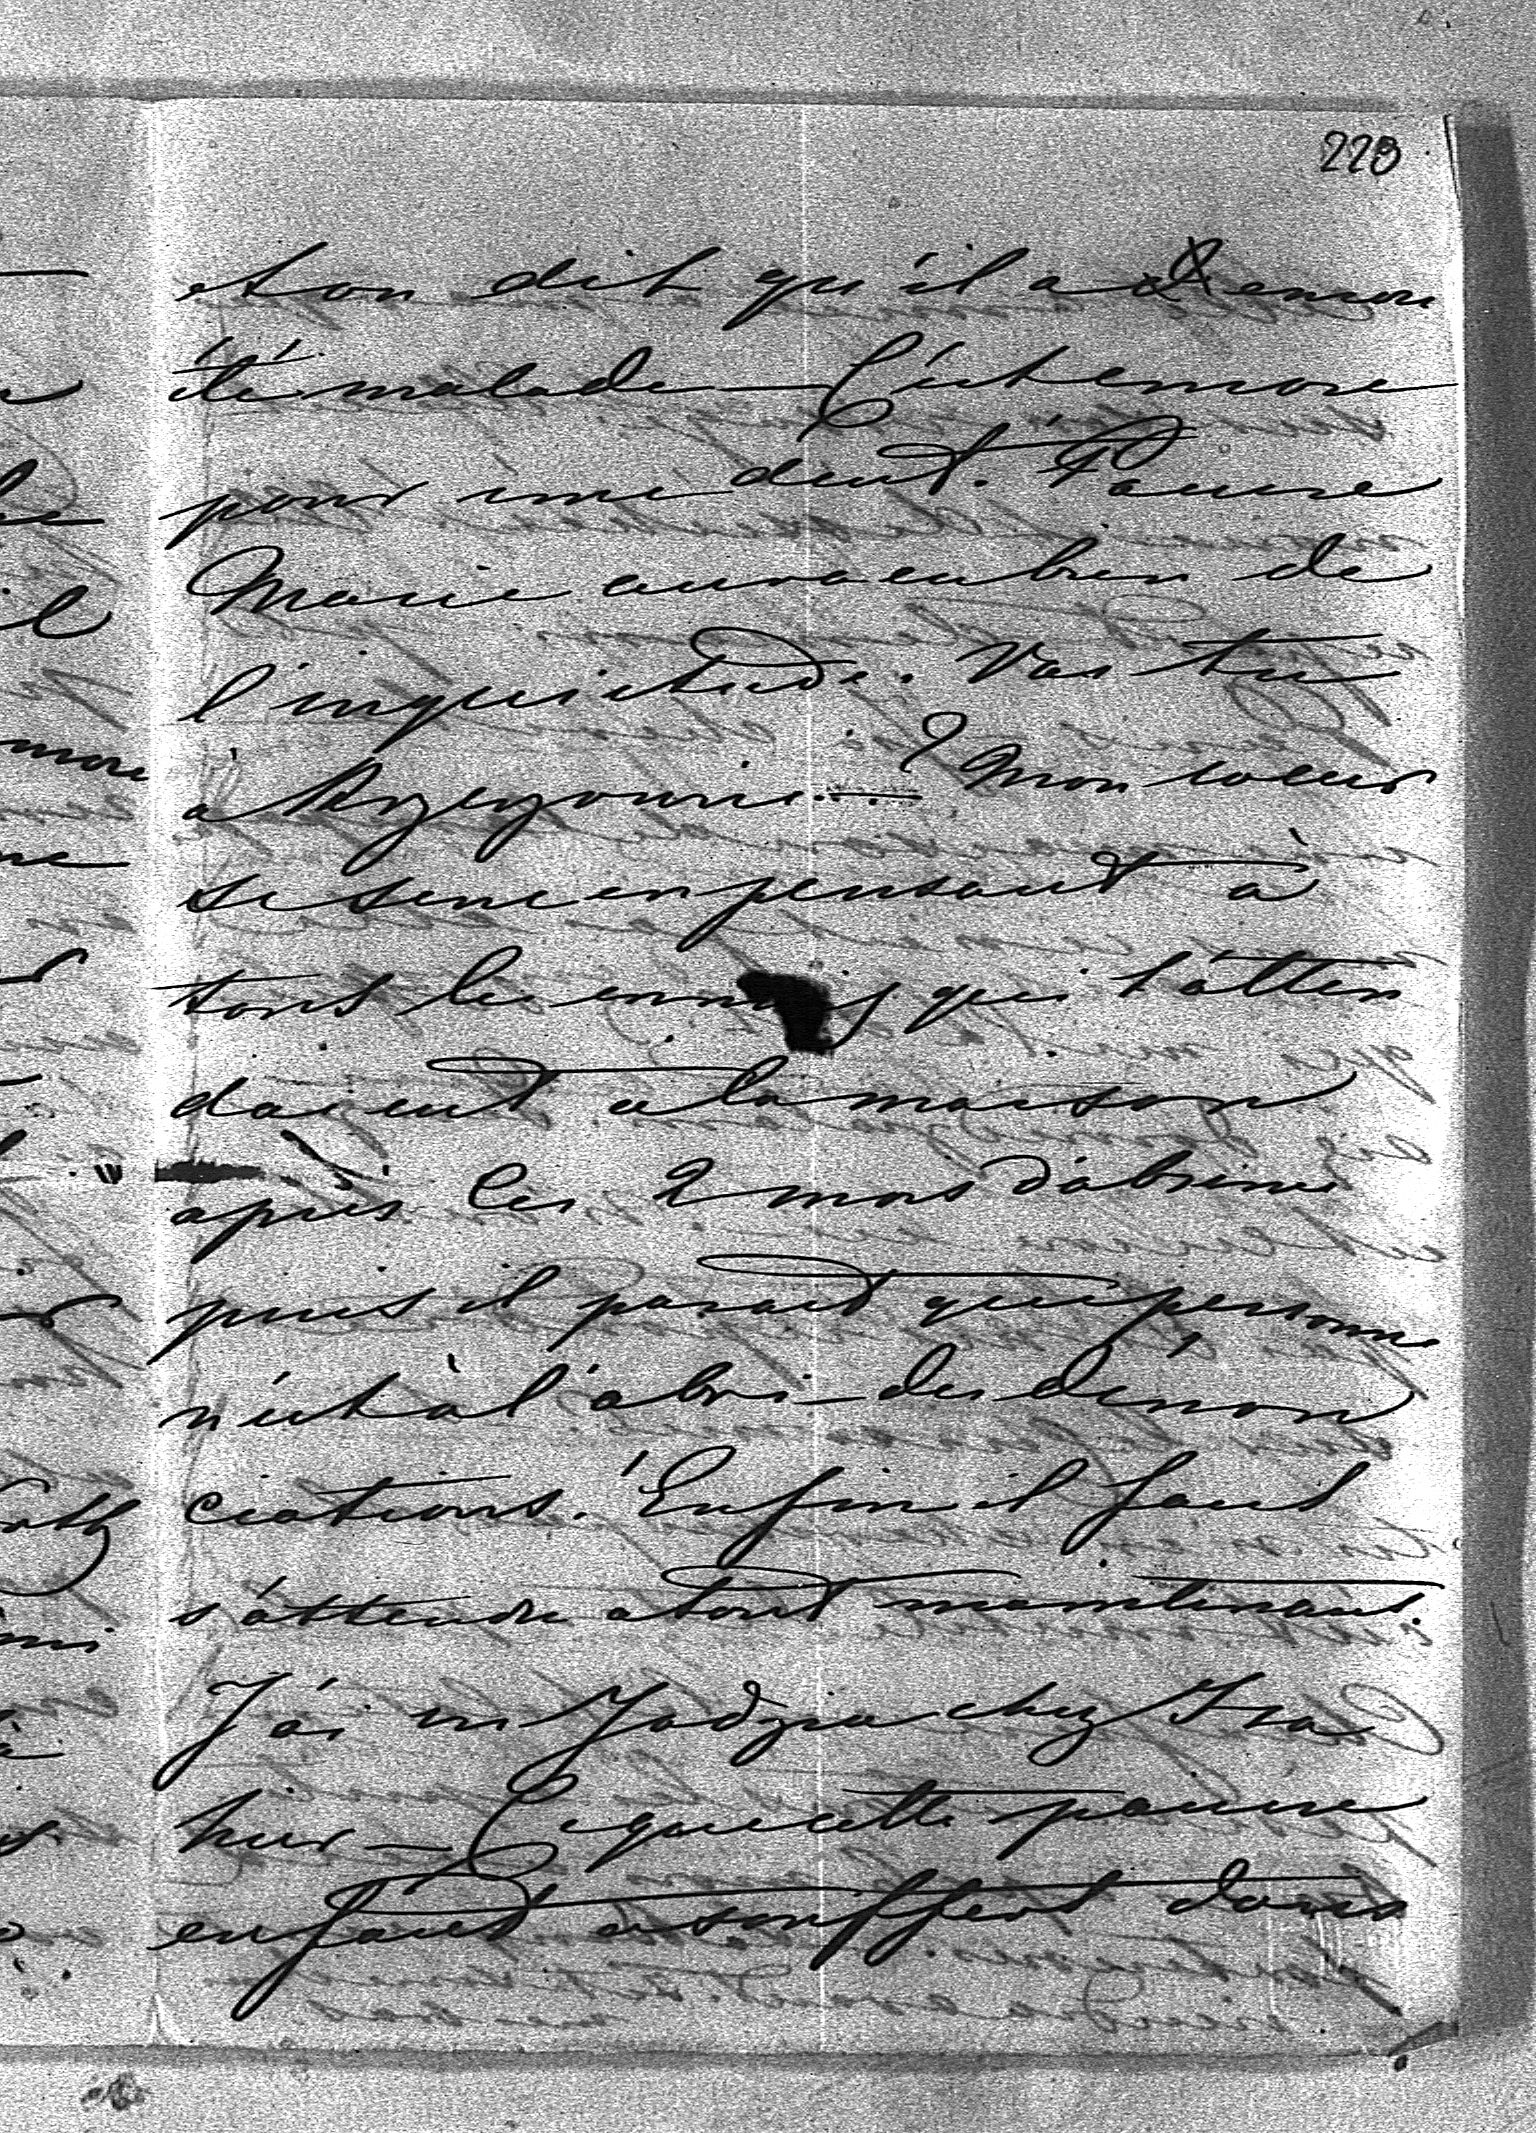 223
et on dit qu'il a encore
été malade — C'est encore
pour une dent. Pauvre
Marie aura eu bien de
l'inquietude. Vas tu
à ? Mon coeur
se serre en pensant à
tous les ennuis qui t'atten
daient a la maison
après les 2 mois d'absence
puis il parait que personne
n'est à l'abri des dénon
ciations. Enfin il faut
s'attendre a tout maintenant.
J'ai vu Jadzia chez Iza
hier — Ce que cette pauvre
enfant a souffert dans